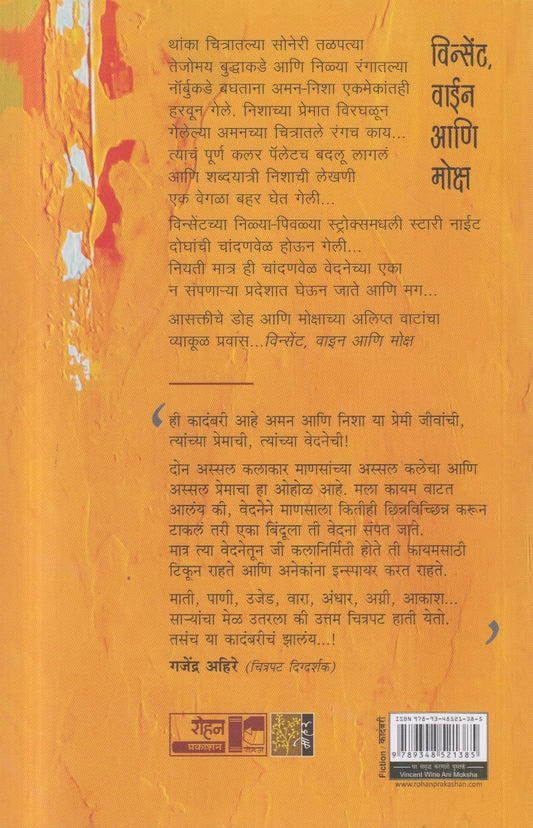 थांका चित्रातल्या सोनेरी तळपत्या
तेजोमय बुद्धाकडे आणि निळ्या रंगातल्या
नॉर्बुकडे बघताना अमन-निशा एकमेकांतही
हरवून गेले. निशाच्या प्रेमात विरघळून
गेलेल्या अमनच्या चित्रातले रंगच काय...
त्याचं पूर्ण कलर पॅलेटच बदलू लागलं
आणि शब्दयात्री निशाची लेखणी
एक वेगळा बहर घेत गेली...
विन्सेंटच्या निळ्या-पिवळ्या स्ट्रोक्समधली स्टारी नाईट
दोघांची चांदणवेळ होऊन गेली...
नियती मात्र ही चांदणवेळ वेदनेच्या एका
न संपणाऱ्या प्रदेशात घेऊन जाते आणि मग...
आसक्तीचे डोह आणि मोक्षाच्या अलिप्त वाटांचा
व्याकूळ प्रवास...विन्सेंट, वाइन आणि मोक्ष
विन्सेंट,
वाईन
आणि
मोक्ष
‘ ही कादंबरी आहे अमन आणि निशा या प्रेमी जीवांची,
त्यांच्या प्रेमाची, त्यांच्या वेदनेची!
दोन अस्सल कलाकार माणसांच्या अस्सल कलेचा आणि
अस्सल प्रेमाचा हा ओहोळ आहे. मला कायम वाटत
आलंय की, वेदनेने माणसाला कितीही छिन्नविच्छिन्न करून
टाकलं तरी एका बिंदूला ती वेदना संपत जाते.
मात्र त्या वेदनेतून जी कलानिर्मिती होते ती कायमसाठी
टिकून राहते आणि अनेकांना इन्स्पायर करत राहते.
माती, पाणी, उजेड, वारा, अंधार, अग्नी, आकाश...
साऱ्यांचा मेळ उतरला की उत्तम चित्रपट हाती येतो.
तसंच या कादंबरीचं झालंय...! ’
गजेंद्र अहिरे (चित्रपट दिग्दर्शक)
रोहन
प्रकाशन
मोहर
Fiction / कादंबरी
ISBN 978-93-48521-38-5
9 789348 521385
Vincent Wine Ani Moksha
www.rohanprakashan.com